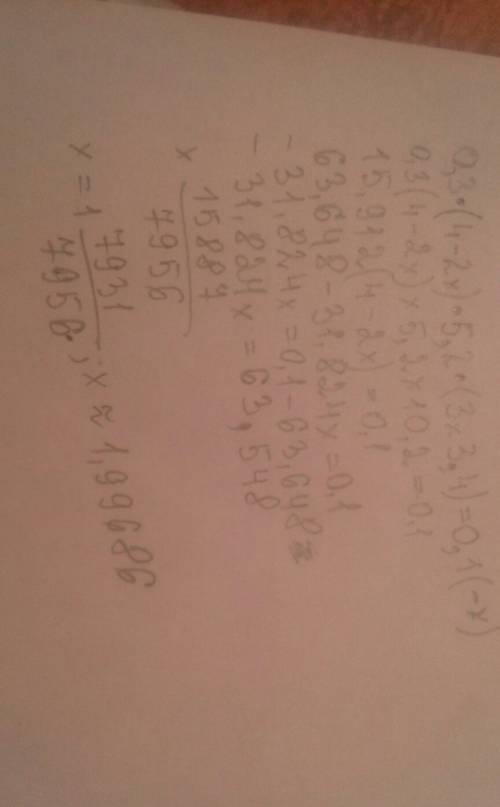 0,3•(4-2x)•5,2•(3x3,4)=0,1(-x)
0,3(4-2x)x5,2x10,2=0,1
15,912(4-2x)=0,1
63,648-31,824x=0,1
-31,824x=0,1-63,648=
-31,824x=63,548
x 15887
7956
x=1 7931/7956; x≈1,99686